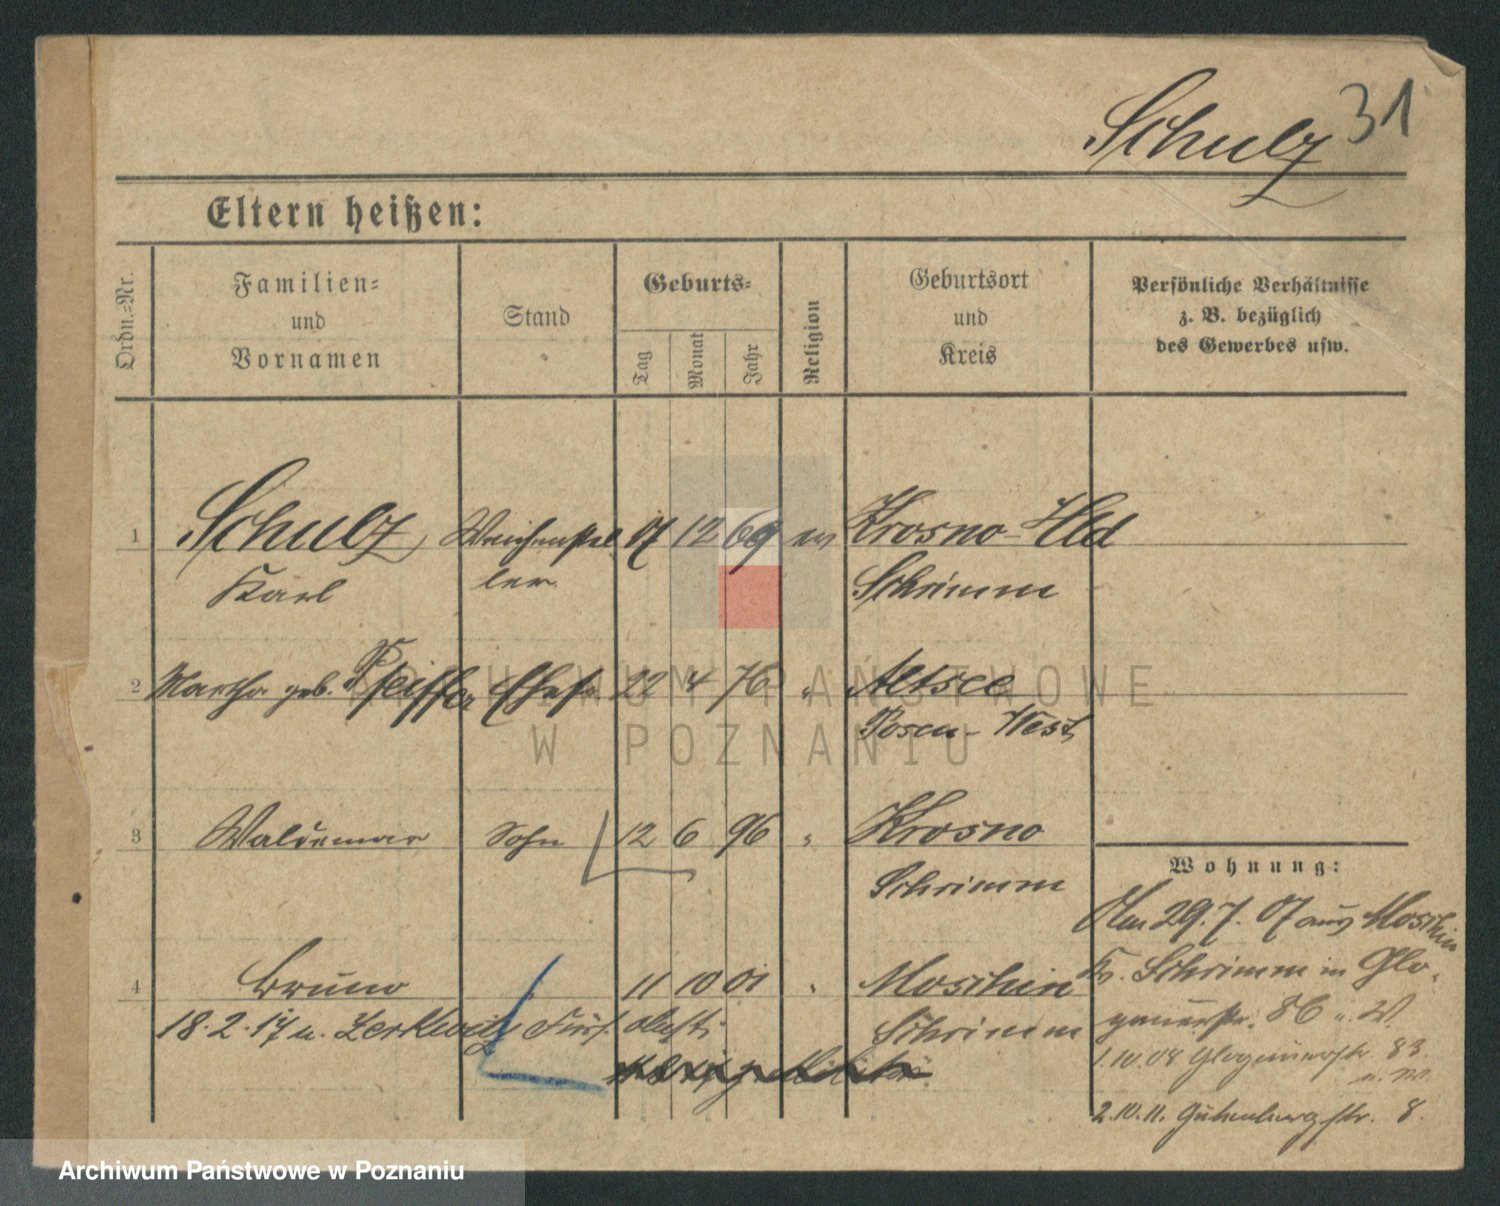 Schulz
31
Eltern heißen:
Ordn.=Nr.
Familien=
und
Vornamen
Stand
Geburts=
Tag
Monat
Jahr
Religion
Geburtsort
und
Kreis
Persönliche Verhältnisse
z. B. bezüglich
des Gewerbes usw.
1 Schulz Weichenstel 12 69 ev Krosno-Hld
Karl ler. Schrimm
2 Martha geb. Pfeiffer Ehefr. 22 4 76 " Altsee
Posen-West
3 Waldemar Sohn 12 6 96 " Krosno
Schrimm
Wohnung:
Am 29.7.07 aus Moschin
Kr. Schrimm in Glo-
gauerstr. 86 u. W.
1.10.08 Glogauerstr. 83
u. W.
2.10.11. Gutenbergstr. 8.
4 Bruno " 11 10 01 " Moschin
18.2.17 n. Zerkwitz Schrimm
ARCHIWUM PAŃSTWOWE
W POZNANIU
Archiwum Państwowe w Poznaniu